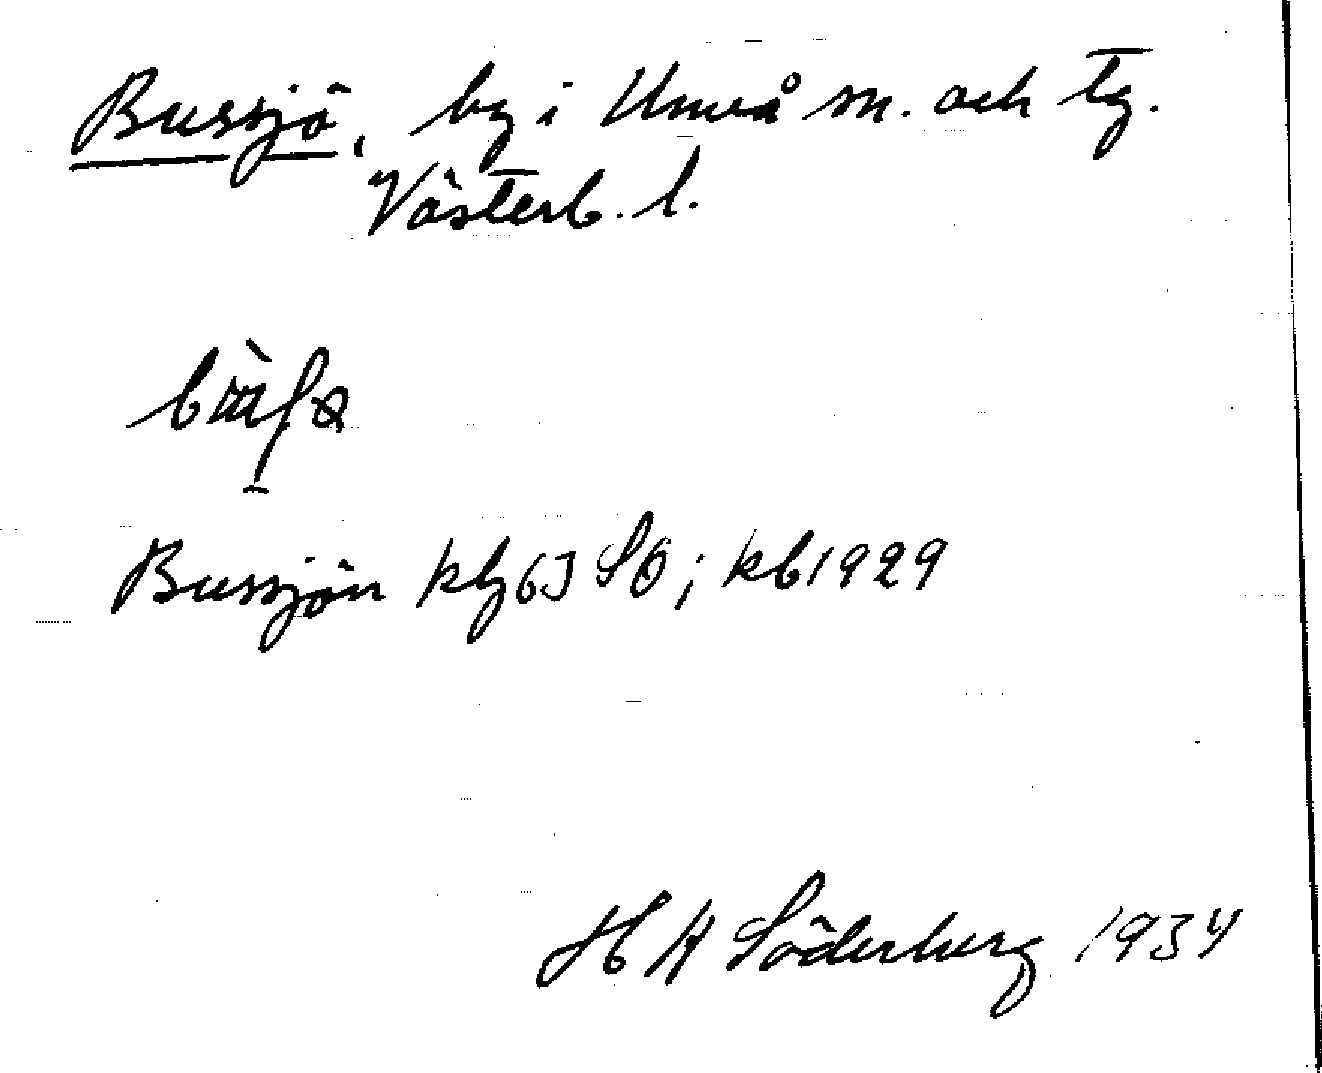 Bussjö, by i Umeå sn. och tg.
Västerb. l.
Bussjön kbg 63 SO; kb 1929
H A Söderberg 1934